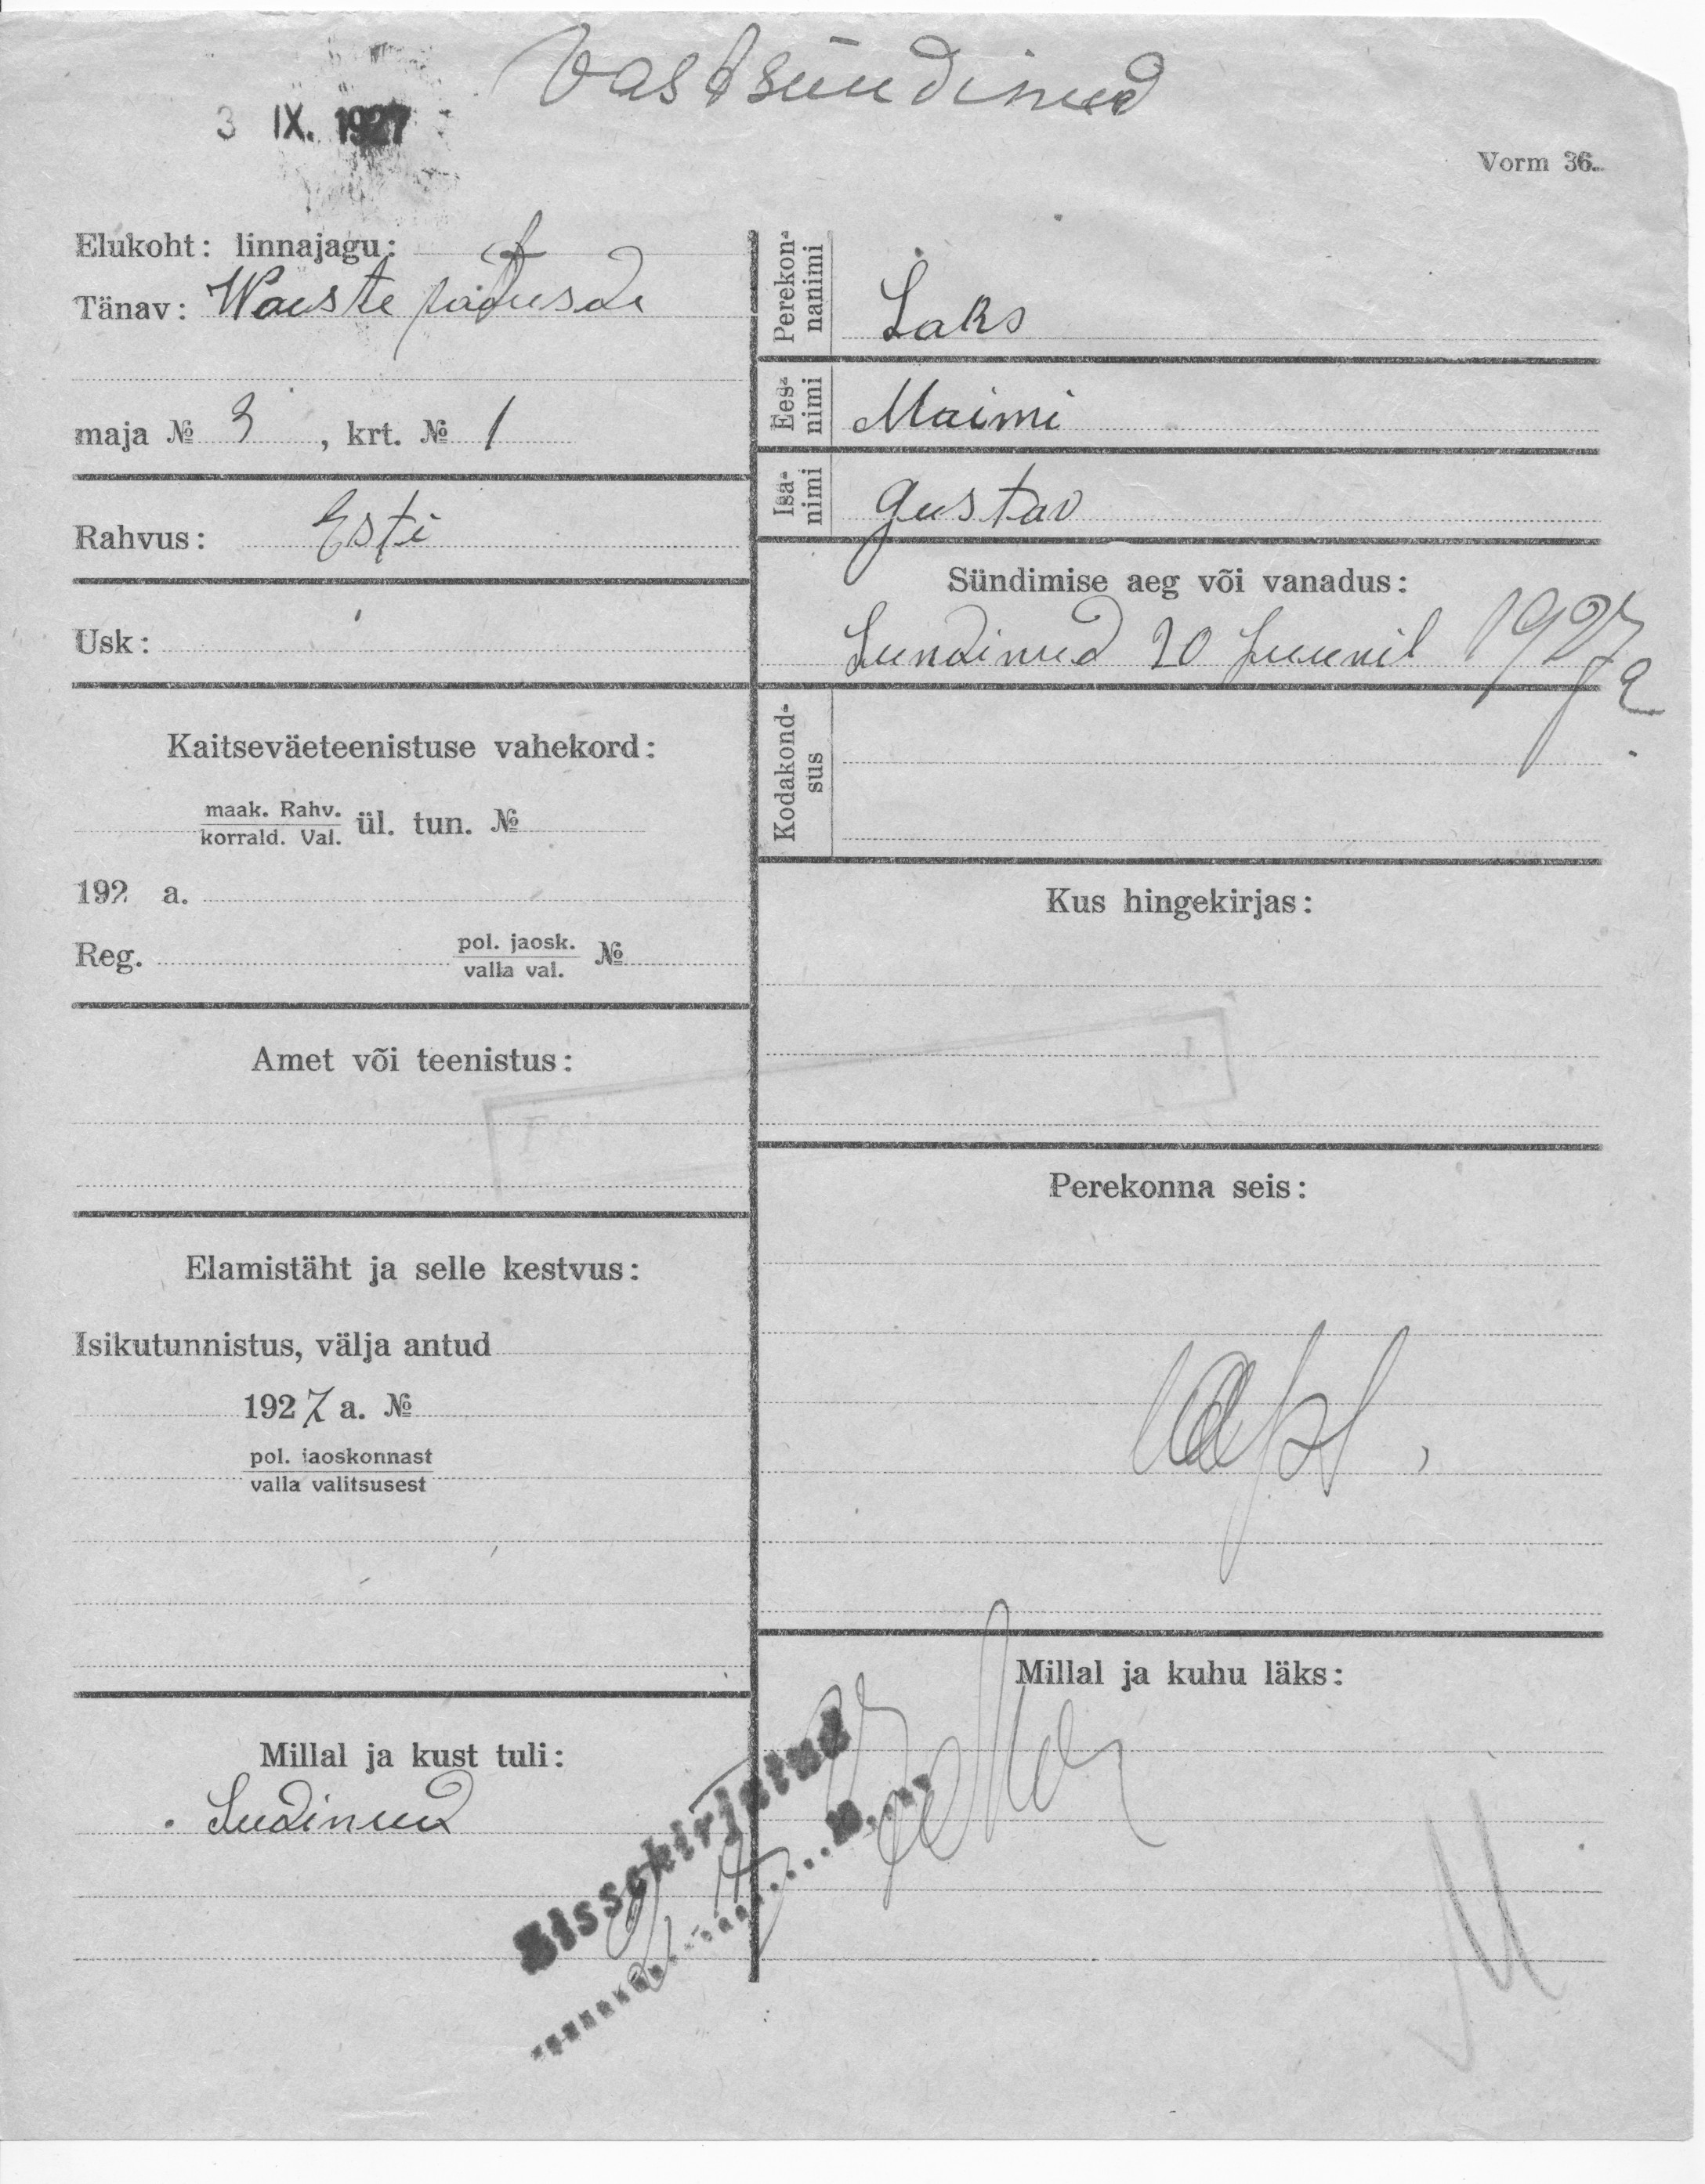 Vastsündinud
3 IX. 1927
Vorm 36.
Elukoht: linnajagu:
Tänav: Waeste
maja № 3, krt. № 1
Rahvus: Esti
Usk:
Kaitseväeteenistuse vahekord:
maak. Rahv.
korrald. Val. ül. tun. №
192 a.
Reg. pol. jaosk. №
valla val.
Amet või teenistus:
Elamistäht ja selle kestvus:
Isikutunnistus, välja antud
1927 a. №
pol. jaoskonnast
valla valitsusest
Millal ja kust tuli:
Sudinud
Perekon-
nanimi Laks
Ees-
nimi Maimi
Isa-
nimi Gustav
Sündimise aeg või vanadus:
Sundinud 20 Juunil 1927 a.
Kodakond-
sus
Kus hingekirjas:
Perekonna seis:
Laps
Millal ja kuhu läks:
Sissekirjutud